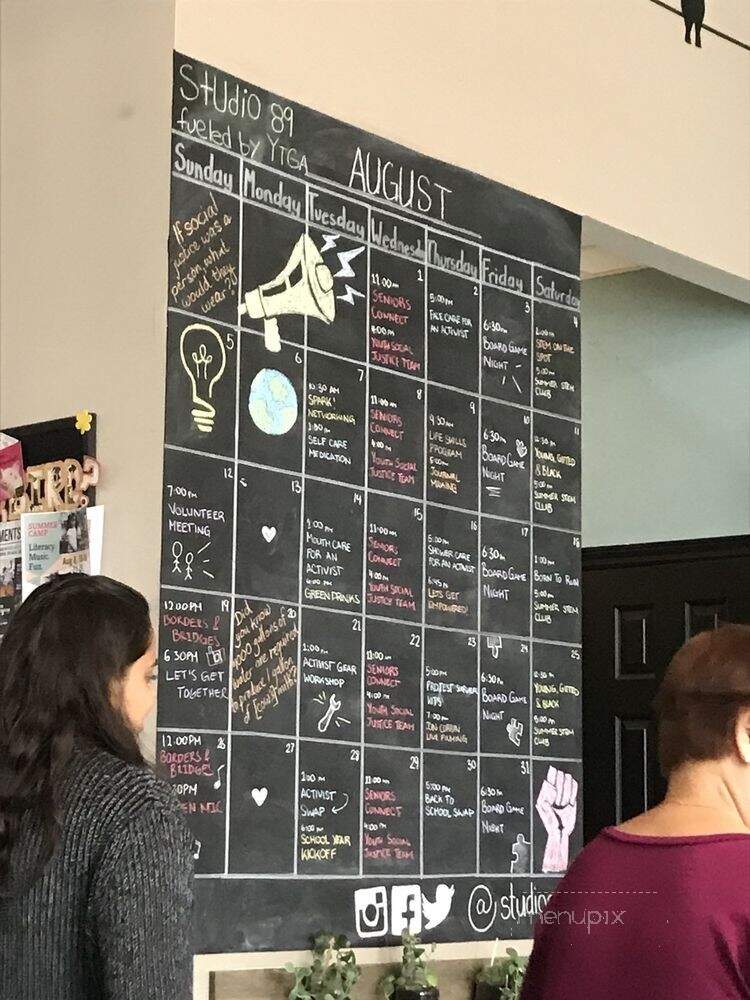 Studio 89
fueled by YTGA
AUGUST
Sunday Monday Tuesday Wednesday Thursday Friday Saturday
If social
justice was a
person, what
would they
wear?
1
11:00am
SENIORS
CONNECT
4:00pm
YOUTH SOCIAL
JUSTICE TEAM
2
5:00pm
FACE CARE FOR
AN ACTIVIST
3
6:30pm
BOARD GAME
NIGHT
4
STEM ON THE
SPOT
5:00pm
SUMMER STEM
CLUB
5
6
7
10:30 AM
SPARK!
NETWORKING
SELF CARE
MEDICATION
8
11:00am
SENIORS
CONNECT
4:00pm
YOUTH SOCIAL
JUSTICE TEAM
9
9:30am
LIFE SKILLS
PROGRAM
5:00pm
JOURNAL
MAKING
10
6:30pm
BOARD GAME
NIGHT
11
YOUNG, GIFTED
& BLACK
5:00pm
SUMMER STEM
CLUB
12
7:00pm
VOLUNTEER
MEETING
13
14
1:00pm
MOUTH CARE
FOR AN
ACTIVIST
6:00pm
GREEN DRINKS
15
11:00am
SENIORS
CONNECT
4:00pm
YOUTH SOCIAL
JUSTICE TEAM
16
5:00pm
SHOWER CARE
FOR AN ACTIVIST
6:45pm
LETS GET
EMPOWERED!
17
6:30pm
BOARD GAME
NIGHT
18
1:00pm
BORN TO RUN
5:00pm
SUMMER STEM
CLUB
19
12:00PM
BORDERS &
BRIDGES
6:30PM
LET'S GET
TOGETHER
20
Did
you know
gallons of
water are required
to produce 1 gallon
of [cow] milk?
21
1:00pm
ACTIVIST GEAR
WORKSHOP
22
11:00am
SENIORS
CONNECT
4:00pm
YOUTH SOCIAL
JUSTICE TEAM
23
5:00pm
PROTEST SURVIVAL
KITS
7:00pm
LIVE FILMING
24
6:30pm
BOARD GAME
NIGHT
25
YOUNG, GIFTED
& BLACK
5:00pm
SUMMER STEM
CLUB
26
12:00PM
BORDERS &
BRIDGES
:30PM
EN MIC
27
28
1:00pm
ACTIVIST
SWAP
6:00pm
SCHOOL YEAR
KICKOFF
29
11:00am
SENIORS
CONNECT
4:00pm
YOUTH SOCIAL
JUSTICE TEAM
30
5:00pm
BACK TO
SCHOOL SWAP
31
6:30pm
BOARD GAME
NIGHT
@studio
menupix
SUMMER
CAMP
Literacy
Music.
Fun.